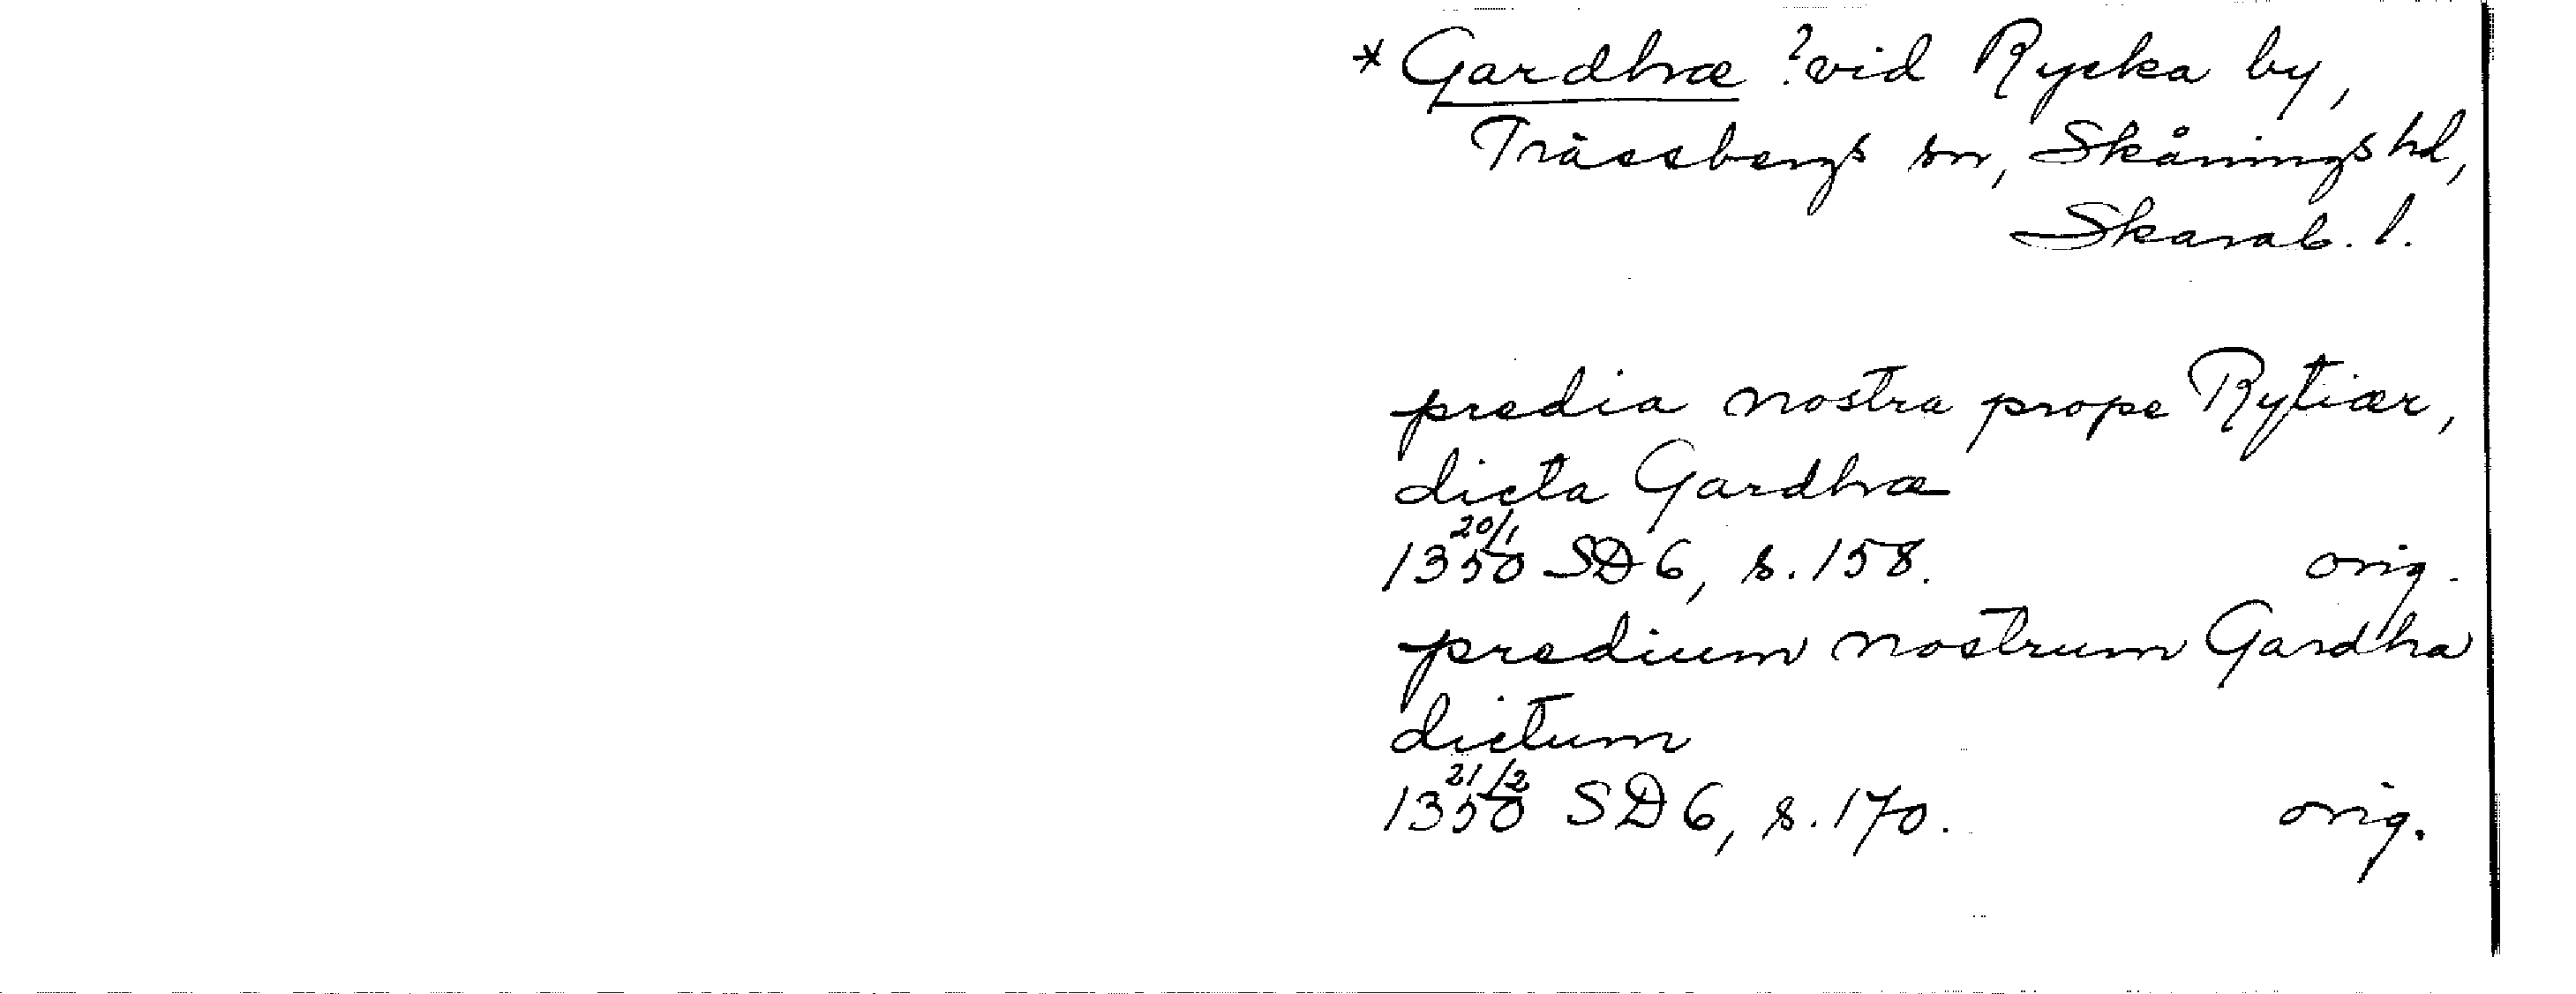 *Gardhræ ? vid Rycka by,
Trässbergs sn, Skånings hd,
Skarab. l.
predia nostra prope Rytiær,
dicta Gardhræ
20/1
1350 SD 6, s. 158. orig.
predium nostrum Gardha
dictum
21/2
1350 SD 6, s. 170. orig.